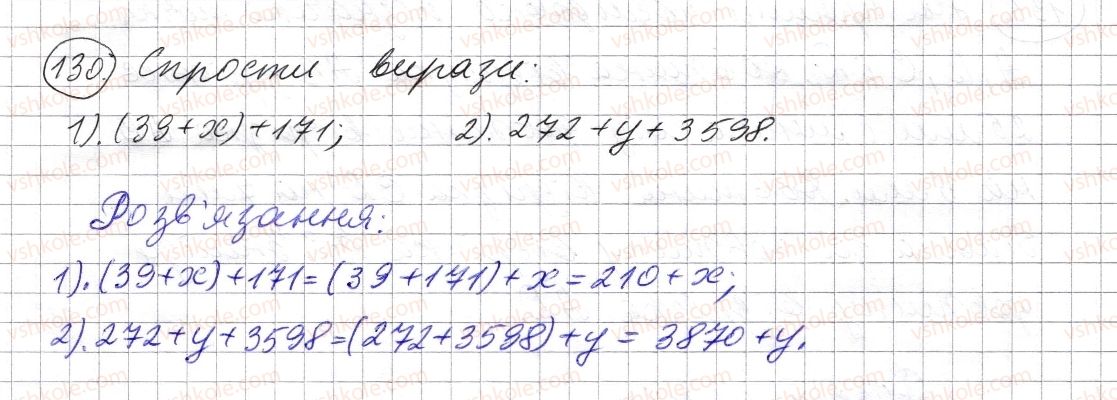 130.) Спрости вирази:
1). (39+x)+171; 2). 272+y+3598.
Розв'язання:
1). (39+x)+171=(39+171)+x=210+x;
2). 272+y+3598=(272+3598)+y= 3870+y.